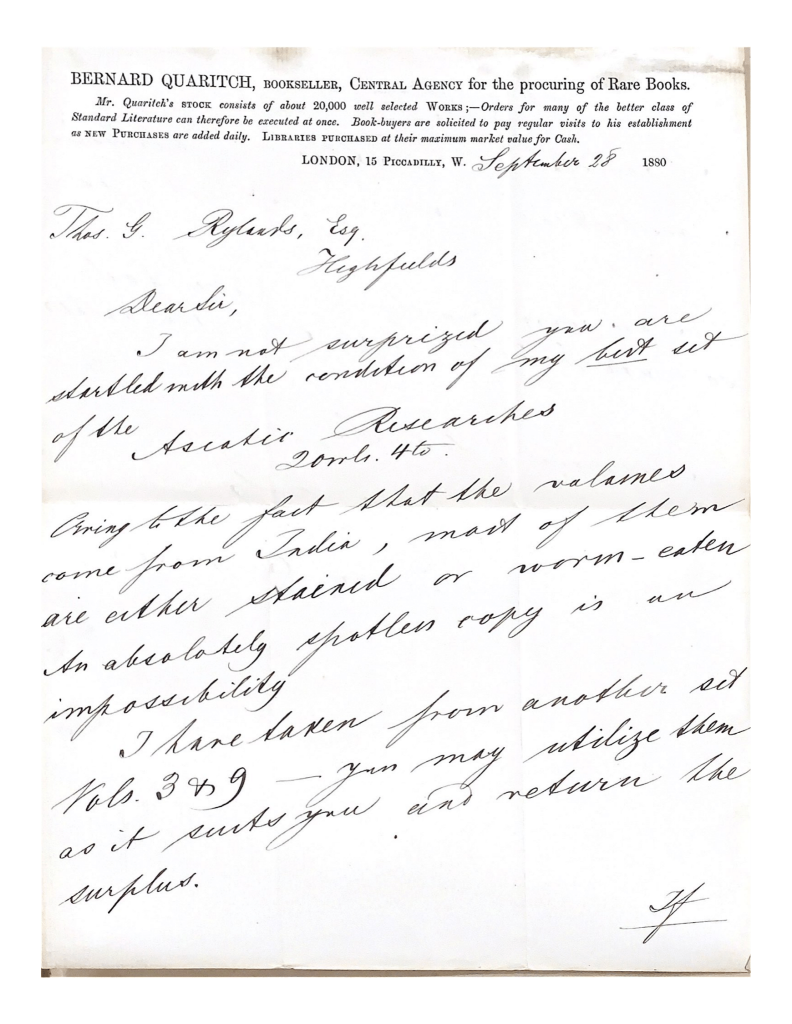 BERNARD QUARITCH, BOOKSELLER, CENTRAL AGENCY for the procuring of Rare Books.
Mr. Quaritch's STOCK consists of about 20,000 well selected WORKS;—Orders for many of the better class of
Standard Literature can therefore be executed at once. Book-buyers are solicited to pay regular visits to his establishment
as NEW PURCHASES are added daily. LIBRARIES PURCHASED at their maximum market value for Cash.
LONDON, 15 PICCADILLY, W. September 28 1880
Thos. G. Rylands, Esq.
Highfields
Dear Sir,
I am not surprized you are
startled with the condition of my best set
of the
Asiatic Researches
20 vols. 4to.
Owing to the fact that the volumes
come from India, most of them
are either stained or worm-eaten
An absolutely spotless copy is an
impossibility
I have taken from another set
Vols. 3 & 9 — you may utilize them
as it suits you and return the
surplus.
If